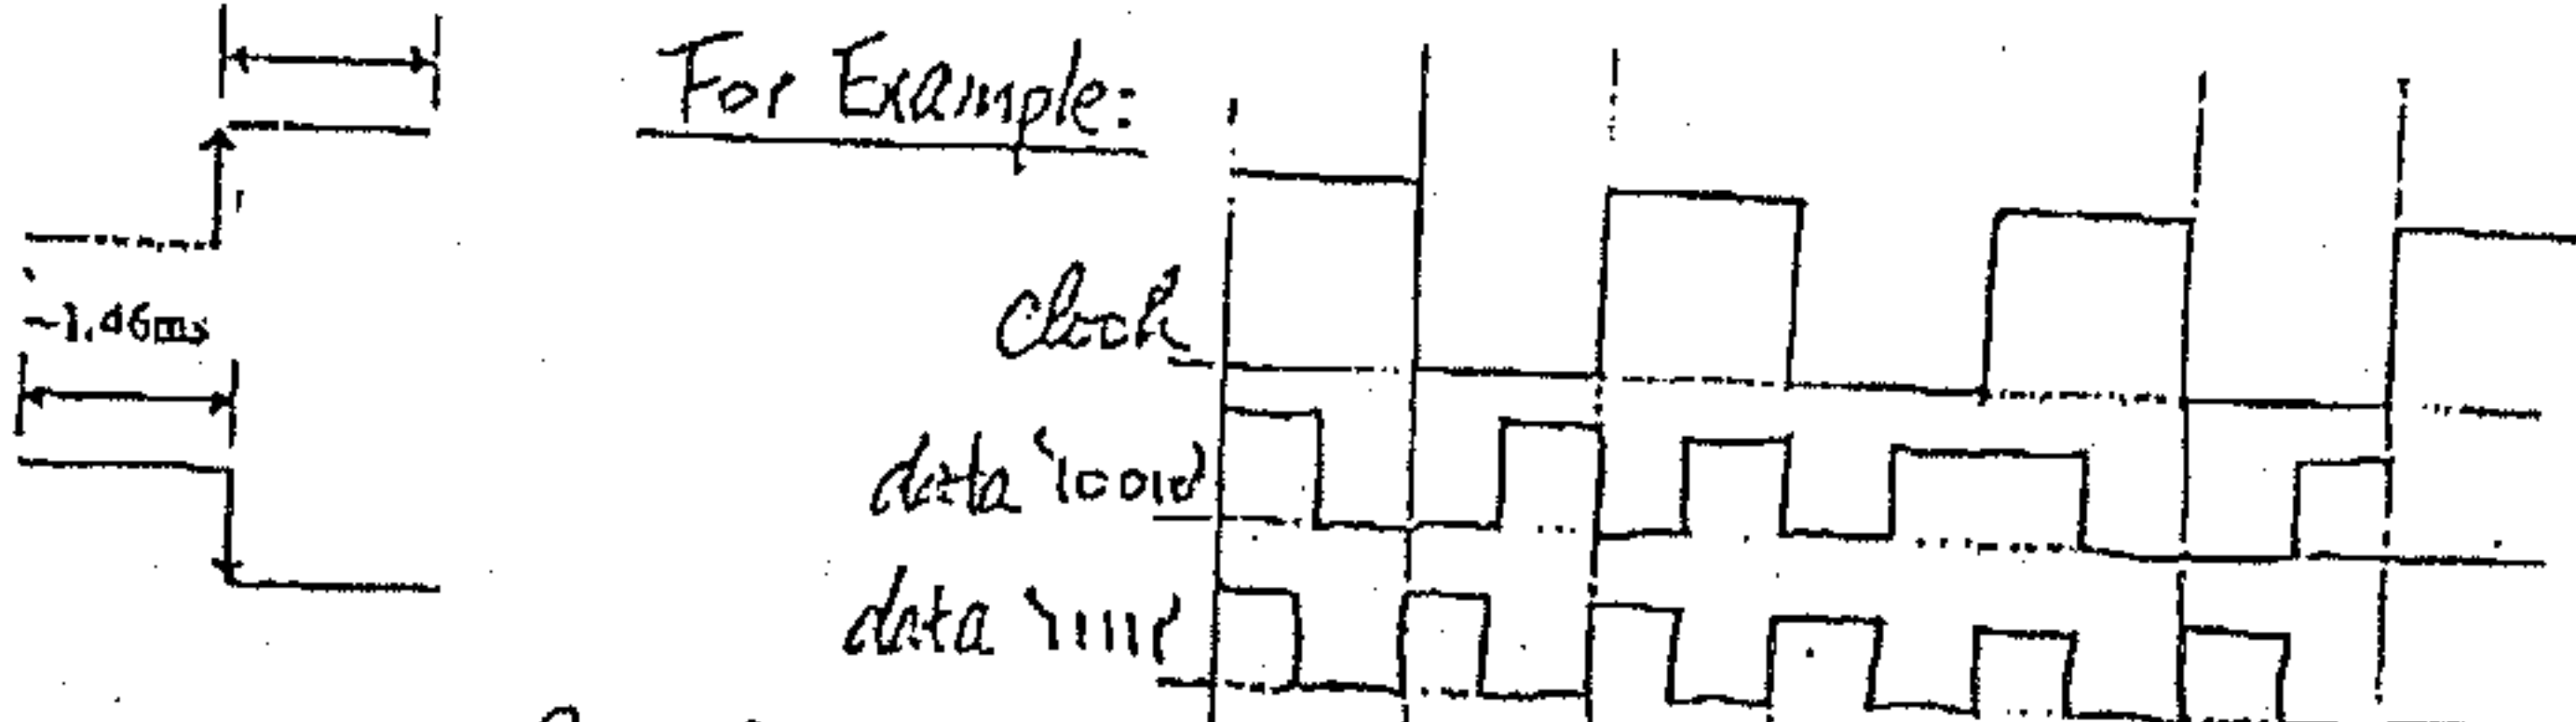 For Example:
~1.46ms
clock
data '10010'
data '11111'